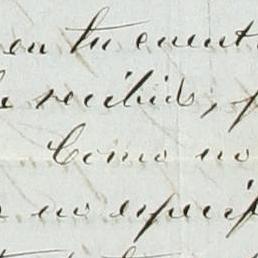 en tu cuent
recibido; 
Como no
no especif